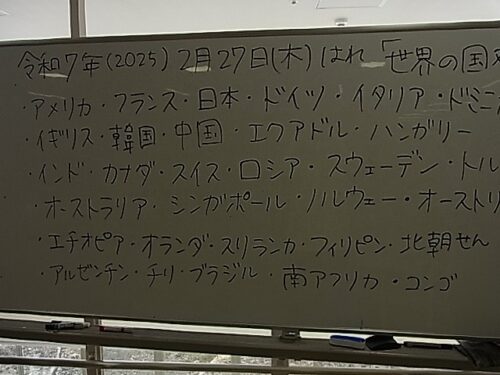 令和7年(2025) 2月27日(木) はれ 「世界の国
・アメリカ・フランス・日本・ドイツ・イタリア・ドミニ
・イギリス・韓国・中国・エクアドル・ハンガリー
・インド・カナダ・スイス・ロシア・スウェーデン・トル
・オーストラリア・シンガポール・ノルウェー・オーストリ
・エチオピア・オランダ・スリランカ・フィリピン・北朝せん
・アルゼンチン・チリ・ブラジル・南アフリカ・コンゴ